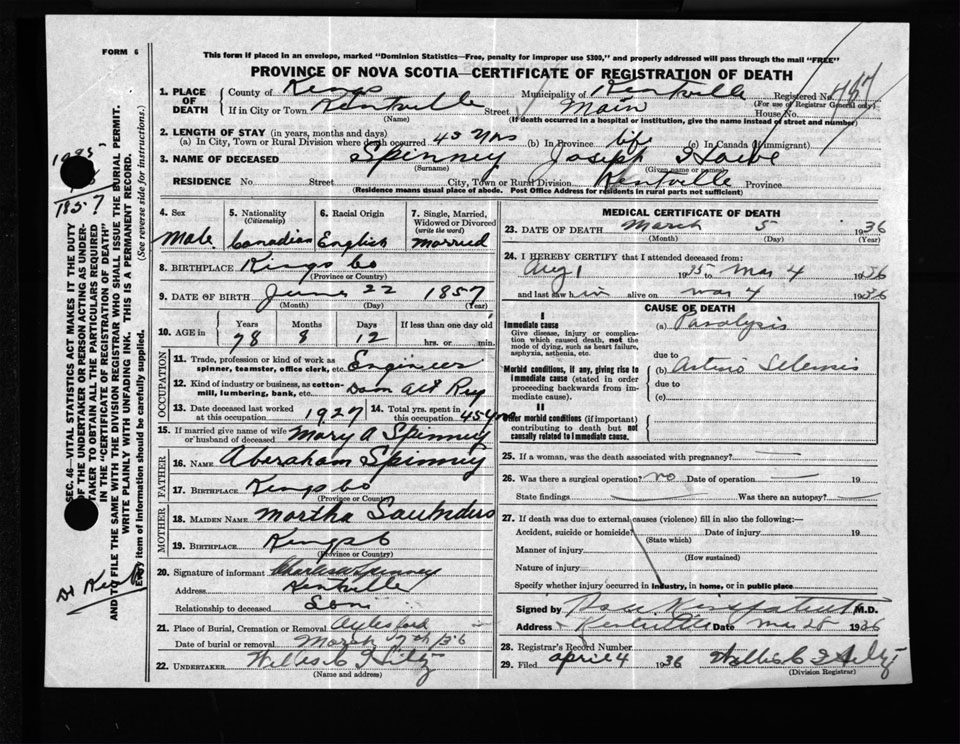 FORM 6
This form if placed in an envelope, marked "Dominion Statistics—Free, penalty for improper use $300," and properly addressed will pass through the mail "FREE"
PROVINCE OF NOVA SCOTIA—CERTIFICATE OF REGISTRATION OF DEATH
1. PLACE OF DEATH County of Kings Municipality of Kentville Registered No. 457
(For use of Registrar General only)
If in City or Town Kentville Street Main House No.
(Name) (If death occurred in a hospital or institution, give the name instead of street and number)
2. LENGTH OF STAY (in years, months and days)
(a) In City, Town or Rural Division where death occurred 45 yrs (b) In Province life (c) In Canada (if immigrant)
3. NAME OF DECEASED Spinney Joseph Howe
(Surname) (Given name or names)
RESIDENCE No. Street City, Town or Rural Division Kentville Province
(Residence means usual place of abode. Post Office Address for residents in rural parts not sufficient)
4. Sex Male
5. Nationality (Citizenship) Canadian
6. Racial Origin English
7. Single, Married, Widowed or Divorced (write the word) Married
8. BIRTHPLACE Kings Co
(Province or Country)
9. DATE OF BIRTH June 22 1857
(Month) (Day) (Year)
10. AGE in Years Months Days If less than one day old
78 8 12 hrs. or min.
OCCUPATION
11. Trade, profession or kind of work as spinner, teamster, office clerk, etc. Engineer
12. Kind of industry or business, as cotton-mill, lumbering, bank, etc. Dom Atl Rey
13. Date deceased last worked at this occupation 1927
14. Total yrs. spent in this occupation 45 yrs
15. If married give name of wife or husband of deceased Mary A Spinney
FATHER
16. NAME Aberaham Spinney
17. BIRTHPLACE Kings Co
(Province or Country)
MOTHER
18. MAIDEN NAME Martha Saunders
19. BIRTHPLACE Kings Co
(Province or Country)
20. Signature of informant Charles W Spinney
Address Kentville
Relationship to deceased Son
21. Place of Burial, Cremation or Removal Aylesford
Date of burial or removal March 7th / 36
22. UNDERTAKER
(Name and address)
MEDICAL CERTIFICATE OF DEATH
23. DATE OF DEATH March 5 1936
(Month) (Day) (Year)
24. I HEREBY CERTIFY that I attended deceased from:
Aug 1 1935 to Mar 4 1936
and last saw him alive on Mar 4 1936
CAUSE OF DEATH
I
Immediate cause
Give disease, injury or complication which caused death, not the mode of dying, such as heart failure, asphyxia, asthenia, etc.
(a) Paralysis
due to
Morbid conditions, if any, giving rise to immediate cause (stated in order proceeding backwards from immediate cause).
(b) Arterio Sclerosis
due to
(c)
II
Other morbid conditions (if important) contributing to death but not causally related to immediate cause.
25. If a woman, was the death associated with pregnancy?
26. Was there a surgical operation? no Date of operation 19
State findings Was there an autopsy?
27. If death was due to external causes (violence) fill in also the following:—
Accident, suicide or homicide? Date of injury 19
(State which)
Manner of injury
(How sustained)
Nature of injury
Specify whether injury occurred in industry, in home, or in public place
Signed by M.D.
Address Kentville Date Mar 28 1936
28. Registrar's Record Number
29. Filed April 4 1936
(Division Registrar)
SEC. 46—VITAL STATISTICS ACT MAKES IT THE DUTY
OF THE UNDERTAKER OR PERSON ACTING AS UNDER-
TAKER TO OBTAIN ALL THE PARTICULARS REQUIRED
IN THE "CERTIFICATE OF REGISTRATION OF DEATH"
AND TO FILE THE SAME WITH THE DIVISION REGISTRAR WHO SHALL ISSUE THE BURIAL PERMIT.
WRITE PLAINLY WITH UNFADING INK. THIS IS A PERMANENT RECORD.
Every item of information should be carefully supplied. (See reverse side for instructions.)
1857